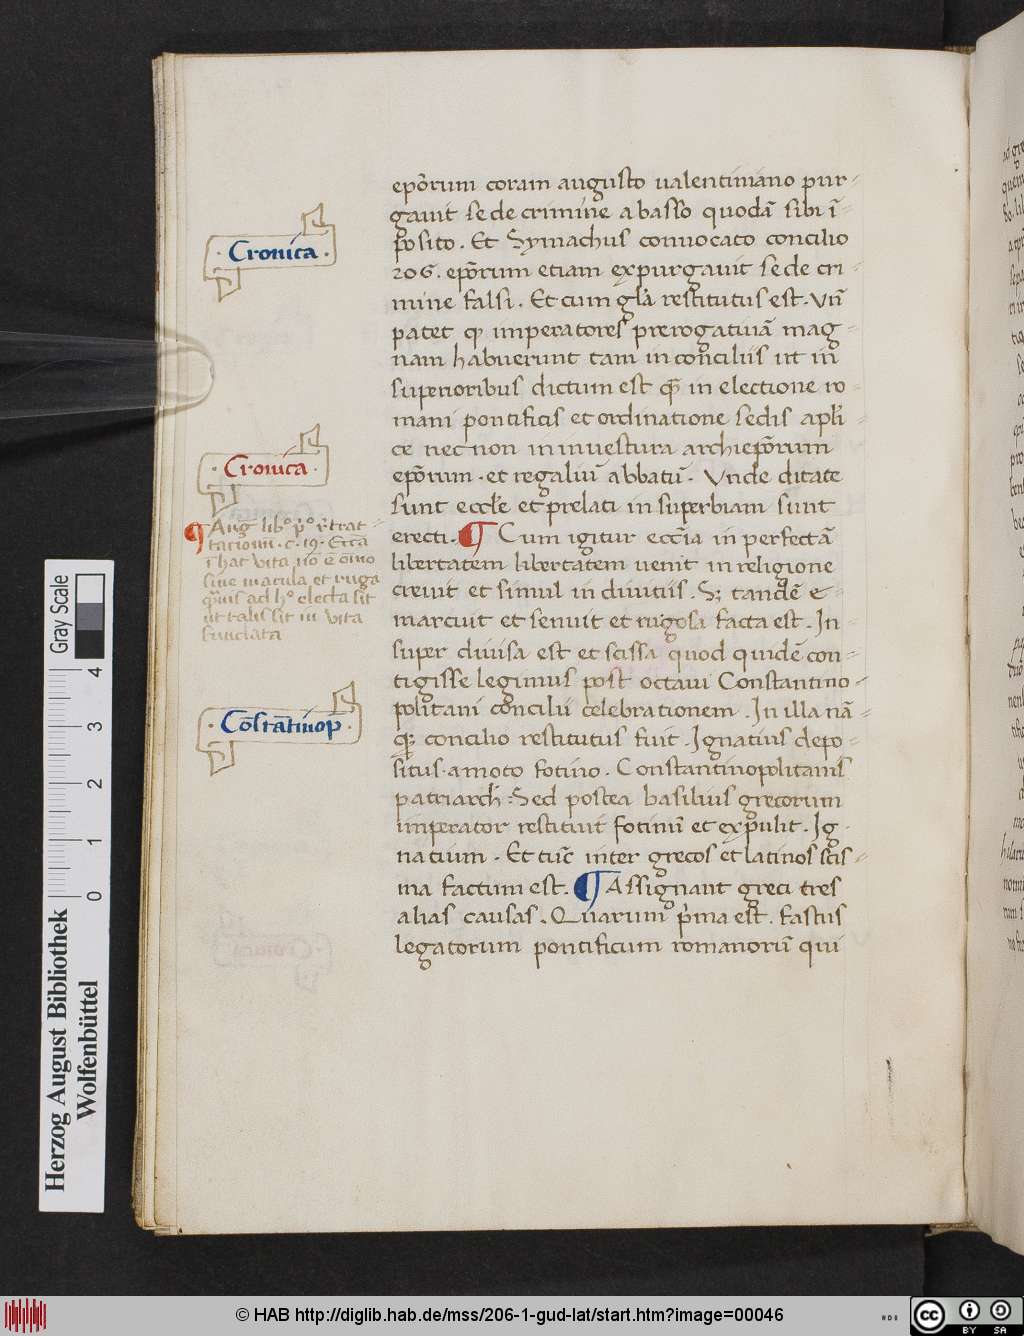 ep̄orum coram augusto ualentiniano pur-
gauit se de crimine a basso quodā sibi ī-
posito. Et Symachus conuocato concilio
206. ep̄orum etiam expurgauit se de cri-
mine falsi. Et cum gl̄a restitutus est. Vn̄
patet qꝫ imperatores prerogatiuā mag-
nam habuerunt tam in conciliis ut in
superioribus dictum est qꝫ in electione ro-
mani pontificis et ordinatione sedis apl̄i-
ce nec non in inuestura archiep̄orum
ep̄orum. et regaliū abbatū. Vnde ditate
sunt eccl̄e et prelati in superbiam sunt
erecti. ¶ Cum igitur ecc̄ia in perfectā
libertatem libertatem uenit in religione
creuit et simul in diuitiis. Sꝫ tandē e-
marcuit et senuit et rugosa facta est. In-
super diuisa est et scissa quod quidē con-
tigisse legimus post octaui Constantino-
politani concilii celebrationem. In illa nā-
qꝫ concilio restitutus fuit. Ignatius depo-
situs. amoto fotino. Constantinopolitanis
patriarch̄. Sed postea basilius grecorum
imperator restituit fotinū et expulit. Ig-
natium. Et tūc inter grecos et latinos scis-
ma factum est. ¶ Assignant greci tres
alias causas. Quarum p̄ma est. fastus
legatorum pontificum romanorū qui
Cronica.
Cronica.
¶ Aug lib.º p.º r̄trat-
tacionū. c. 19. Ecc̄ia
ī hac vita nō ē ōīno
siue macula et ruga
qᷓuis ad hº electa sit
ut talis sit in vita
Cōstātinop̄.
Herzog August Bibliothek
Wolfenbüttel
Gray Scale
0 1 2 3 4
© HAB http://diglib.hab.de/mss/206-1-gud-lat/start.htm?image=00046
cc BY SA